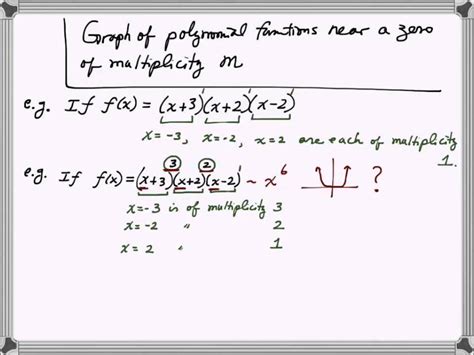 Graph of polynomial functions near a zero
of multiplicity m
e.g. If f(x) = (x+3)¹(x+2)¹(x-2)¹
x = -3, x = -2, x = 2 are each of multiplicity
1.
e.g. If f(x) = (x+3)³(x+2)²(x-2)¹ ~ x⁶ ?
x = -3 is of multiplicity 3
x = -2 " 2
x = 2 " 1